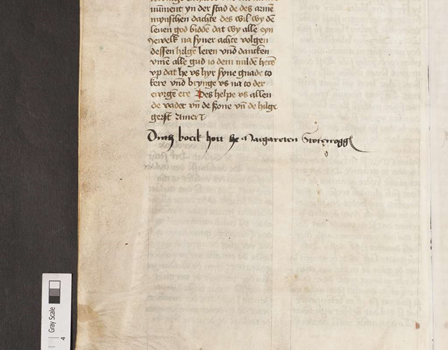 müment yn der stad do des arme
mynschen dachte des wil wy de
leuen god bidde dat wy alle eyn
yewelk na syner achte volgen
dessen hilge leren vnd dancken
vme alle gud so dem milde here
vp dat he vs hyr syne gnade to
kere vnd brynge vs na to der
ere Des helpe vs allen
de vader vn de sone vn de hilge
geist Amen
Duth boek hort Margareten
Gray Scale
4